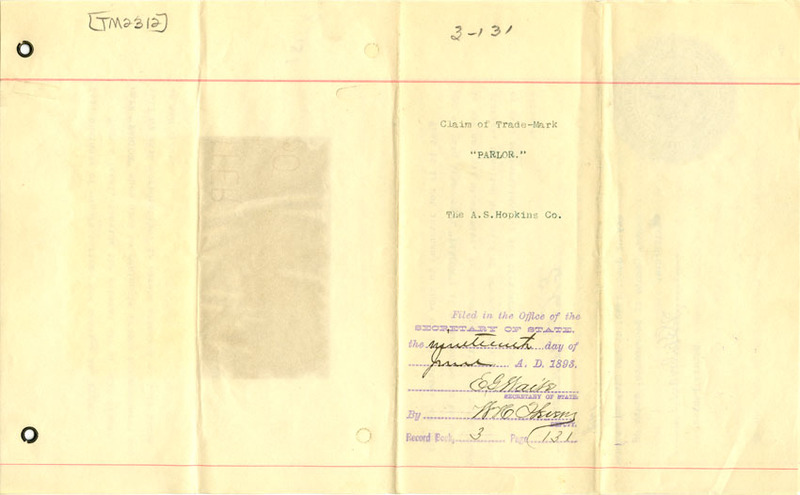 [TM2312]
3-131
Claim of Trade-Mark
"PARLOR."
The A.S.Hopkins Co.
Filed in the Office of the
SECRETARY OF STATE.
the nineteenth day of
June A. D. 1893.
E G Waite
SECRETARY OF STATE
By W H
DEPUTY.
Record Book, 3 Page 131